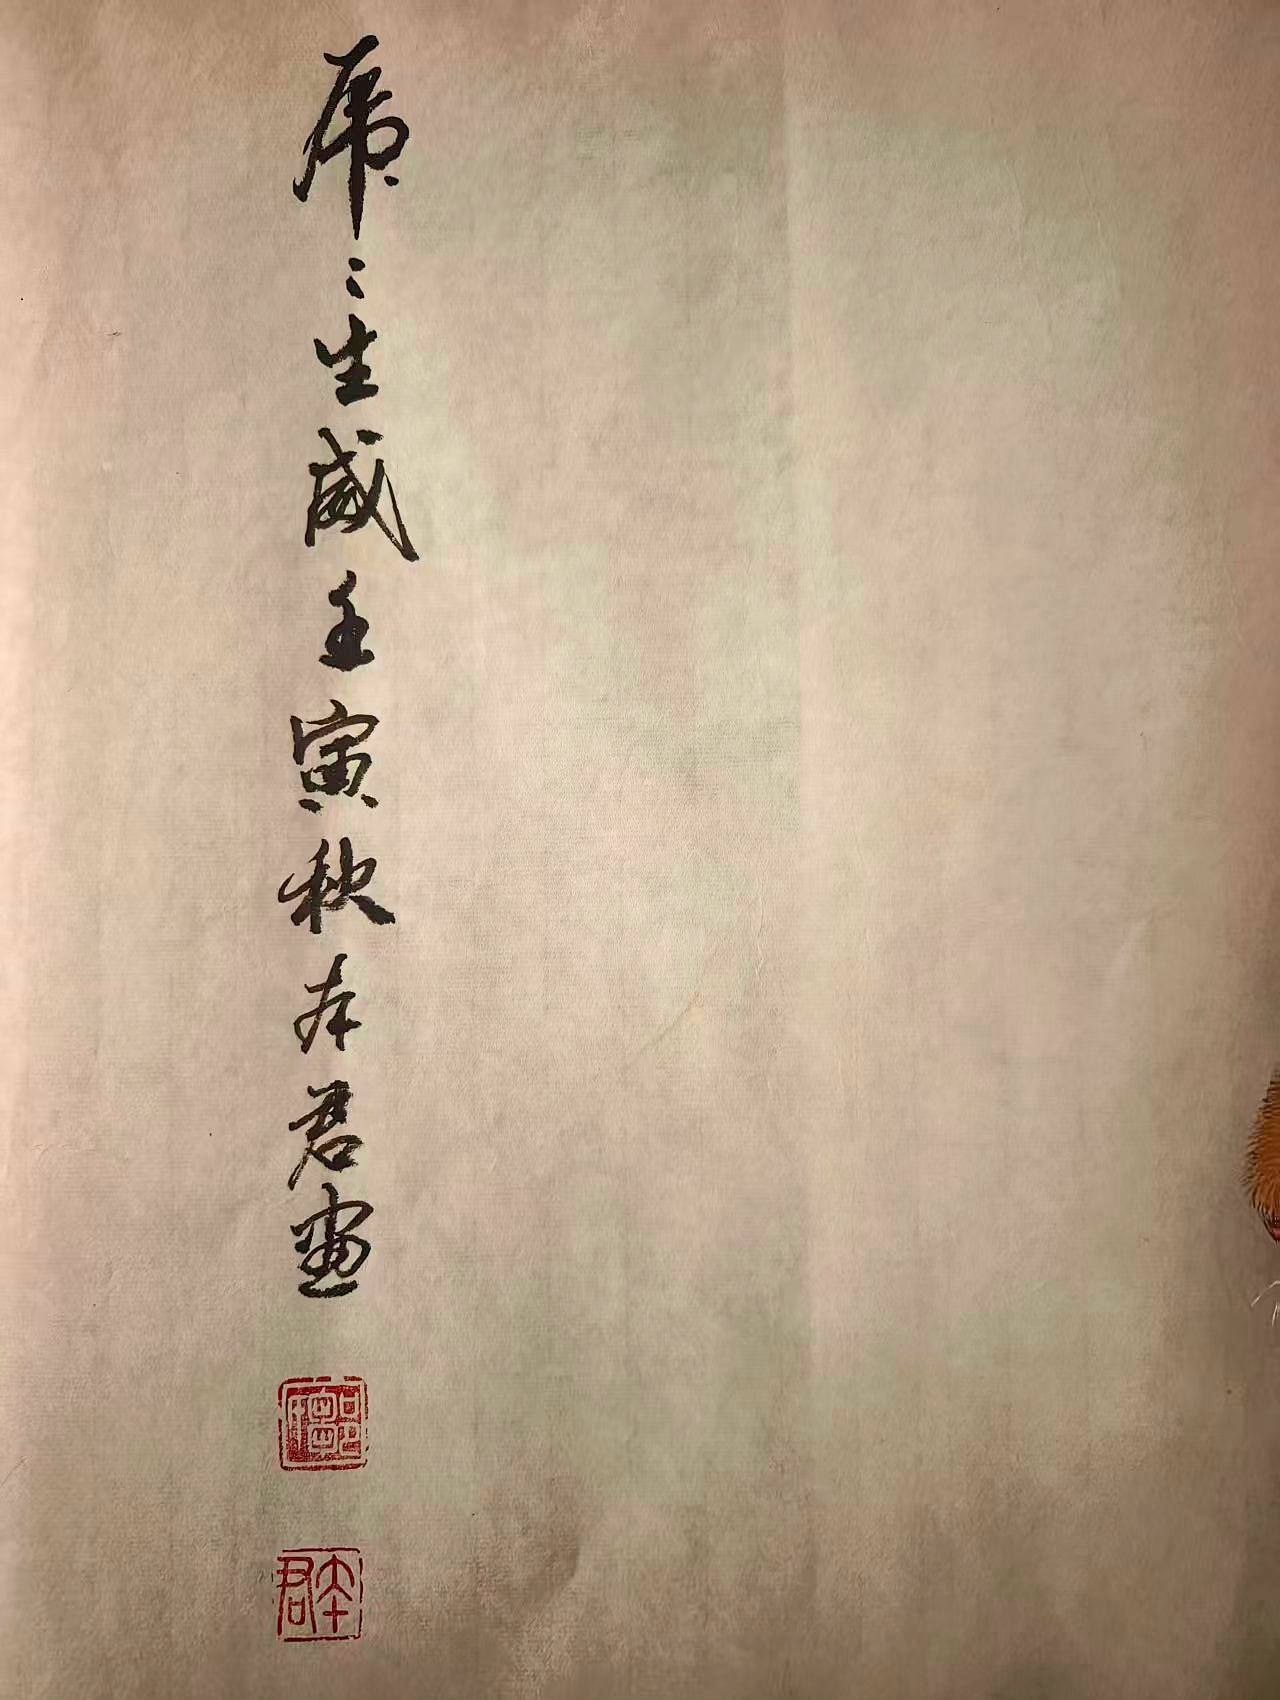 虎々生威壬寅秋本君畫
本君